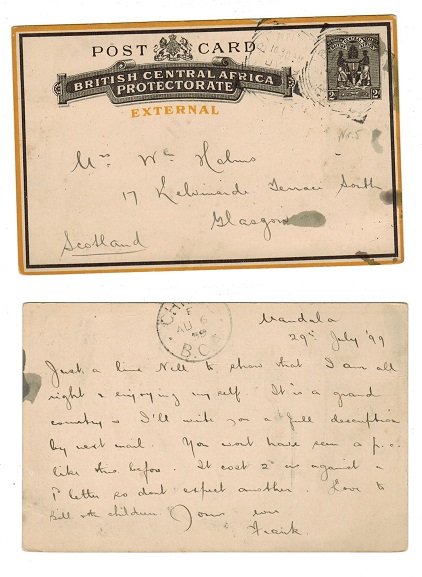 POST CARD
BRITISH CENTRAL AFRICA
PROTECTORATE
EXTERNAL
2d
Mrs Wm Holms
17 Kelvinside Terrace South
Glasgow
Scotland
AU 6
99
B.C.A
Mandala
29th July '99
Just a line Nell to show that I am all
right & enjoying myself. It is a grand
country & I'll write you a full description
by next mail. You wont have seen a p.c.
like this before. It cost 2d as against a
1d letter so dont expect another. Love to
Bill & the children. Your
Frank